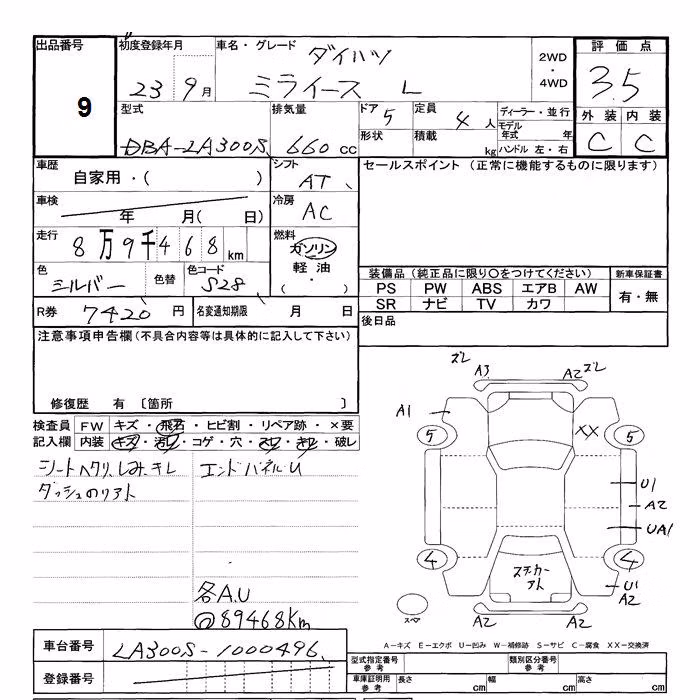 出品番号
9
初度登録年月
23 9月
車名・グレード
ダイハツ
ミライース L
2WD
・
4WD
評価点
3.5
外装 内装
C C
型式
DBA-LA300S
排気量
660 cc
ドア 5
定員 4人
ディーラー・並行
形状
積載 kg
モデル年式 年
ハンドル 左・右
車歴
自家用・( )
シフト
AT
車検
年 月( 日)
冷房
AC
走行
8万9千468km
燃料
ガソリン
軽油
( ・ )
色
シルバー
色替
色コード
S28
R券 7420円
名変通知期限 月 日
セールスポイント (正常に機能するものに限ります)
装備品 (純正品に限り○をつけてください)
新車保証書
PS PW ABS エアB AW
SR ナビ TV カワ
有・無
後日品
注意事項申告欄(不具合内容等は具体的に記入して下さい)
修復歴 有 〔箇所 〕
検査員 FW キズ・飛石・ヒビ割・リペア跡・×要
記入欄 内装 キズ・汚レ・コゲ・穴・スレ・キレ・破レ
シートヘタリ、しみ、キレ
ダッシュのリアト
エンドパネルU
各A.U
@89468Km
ズレ
A3
A2 ズレ
A1
XX
5
5
U1
A2
UA1
4
4
ステッカーアト
U1
A2
A2
スペア
A−キズ E−エクボ U−凹み W−補修跡 S−サビ C−腐食 XX−交換済
車台番号 LA300S-1000496
登録番号
型式指定番号 参考
類別区分番号 参考
車庫証明用 参考
長さ cm 幅 cm 高さ cm